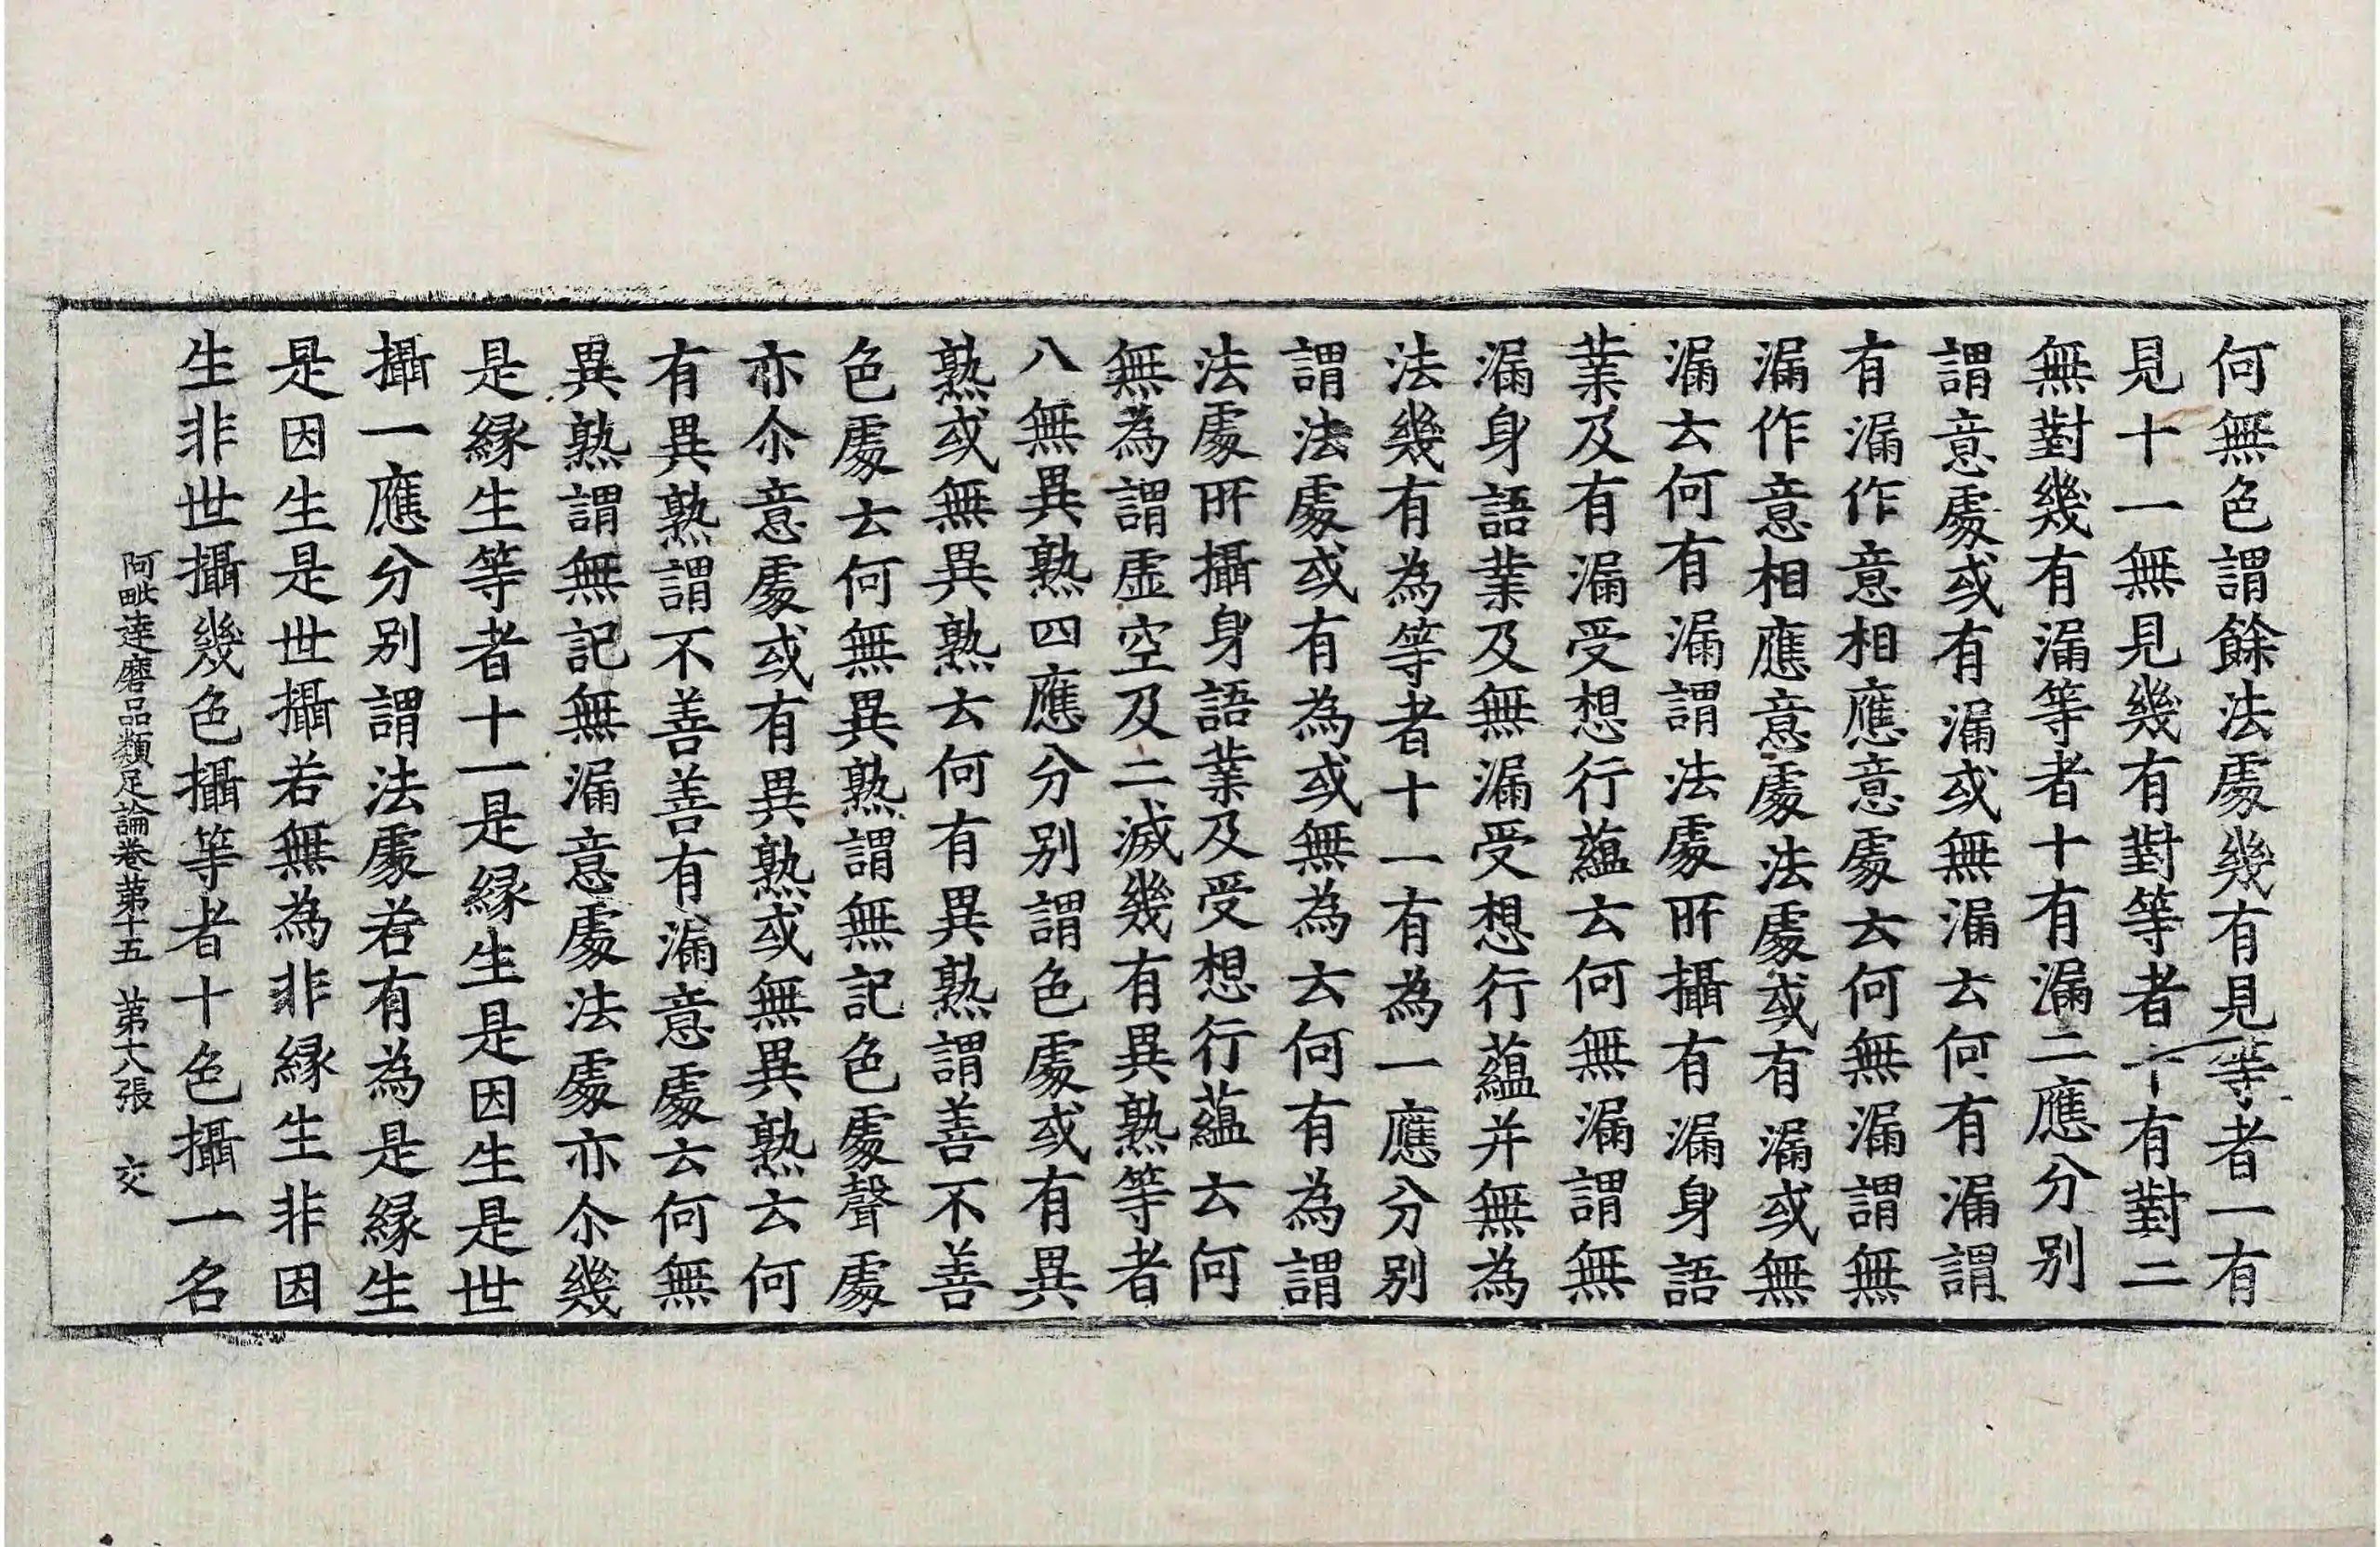 何無色謂餘法處幾有見等者一有
見十一無見幾有對等者十有對二
無對幾有漏等者十有漏二應分别
謂意處或有漏或無漏云何有漏謂
有漏作意相應意處云何無漏謂無
漏作意相應意處法處或有漏或無
漏云何有漏謂法處所攝有漏身語
業及有漏受想行蘊云何無漏謂無
漏身語業及無漏受想行蘊并無為
法幾有為等者十一有為一應分别
謂法處或有為或無為云何有為謂
法處所攝身語業及受想行蘊云何
無為謂虛空及二滅幾有異熟等者
八無異熟四應分别謂色處或有異
熟或無異熟云何有異熟謂善不善
色處云何無異熟謂無記色處聲處
亦尒意處或有異熟或無異熟云何
有異熟謂不善善有漏意處云何無
異熟謂無記無漏意處法處亦尒幾
是緣生等者十一是緣生是因生是世
攝一應分别謂法處若有為是緣生
是因生是世攝若無為非緣生非因
生非世攝幾色攝等者十色攝一名
阿毗達磨品類足論卷第十五 第十八張 交